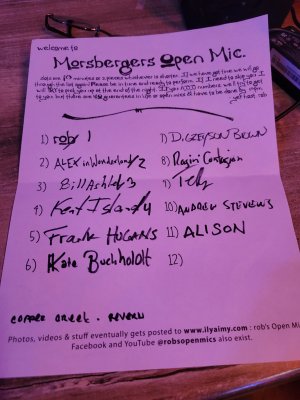 welcome to
Morsbergers Open Mic.
slots are 10 minutes or 2 pieces whatever is shorter. If we have got time we will go
through the list again. Please be in time and ready to perform. If I need to skip you I
will try to put you up at the end of the night. If you ADD numbers we'll try to get
to you but there are no guarantees in life or open mics & have to be done by 11pm.
yer host rob
1) rob 1
2) ALEX in Wonderland 2
3) Bill Ashted 3
4) Kent Island 4
5) Frank HUGANS
6) Kate Buchholdt
7) D. GREYSON BROWN
8) Ragin' Contagion
9)
10) ANDREW STEVENS
11) ALISON
12)
COPPER CREEK .
Photos, videos & stuff eventually gets posted to www.ilyaimy.com : rob's Open Mi
Facebook and YouTube @robsopenmics also exist.